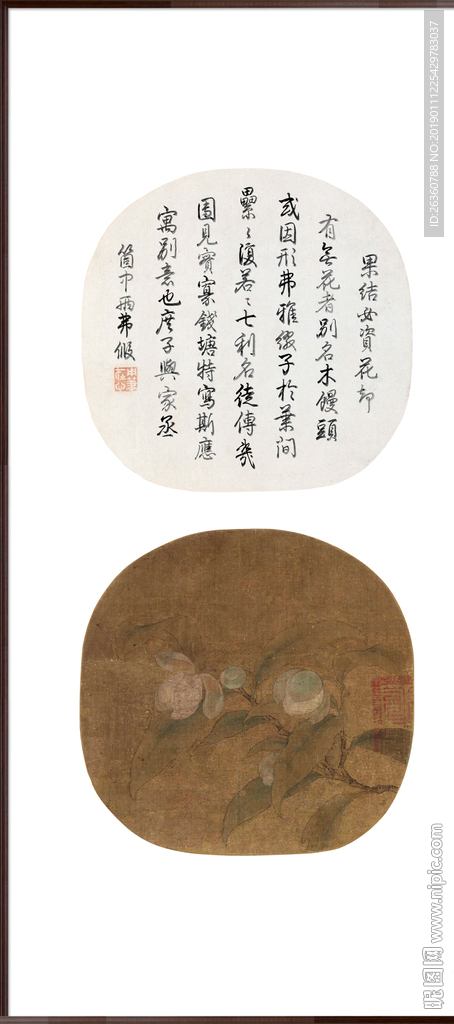 果結無資花却
有無花者別名木饅頭
或因形弗雅緻子於葉間
纍〻復若〻七利名徒傳幾
圖見實寡錢塘特寫斯應
寓別意也庶子與家丞
箇中兩弗假
ID:26360788 NO:20190111225429783037
昵图网 www.nipic.com